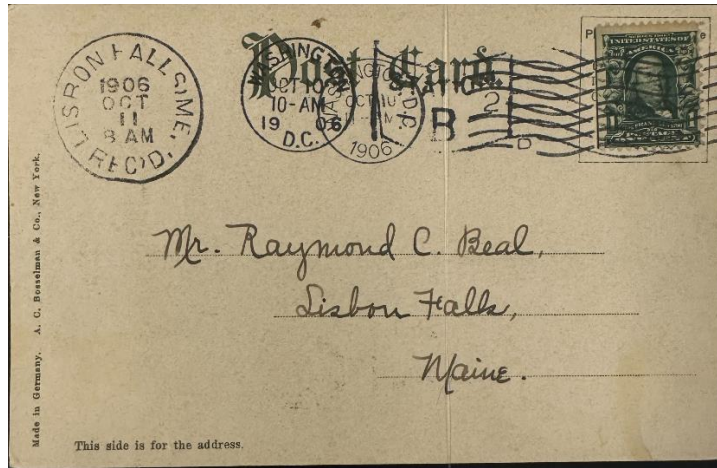 Post Card.
LISBON FALLS, ME.
1906
OCT
11
8 AM
REC'D.
WASHINGTON
OCT 10
10-AM
1906
D.C.
WASHINGTON, D.C.
OCT 10
1906
STATION
B
2
D
SERIES 1902
UNITED STATES OF
AMERICA
Mr. Raymond C. Beal,
Lisbon Falls,
Maine.
Made in Germany. A. C. Bosselman & Co., New York.
This side is for the address.